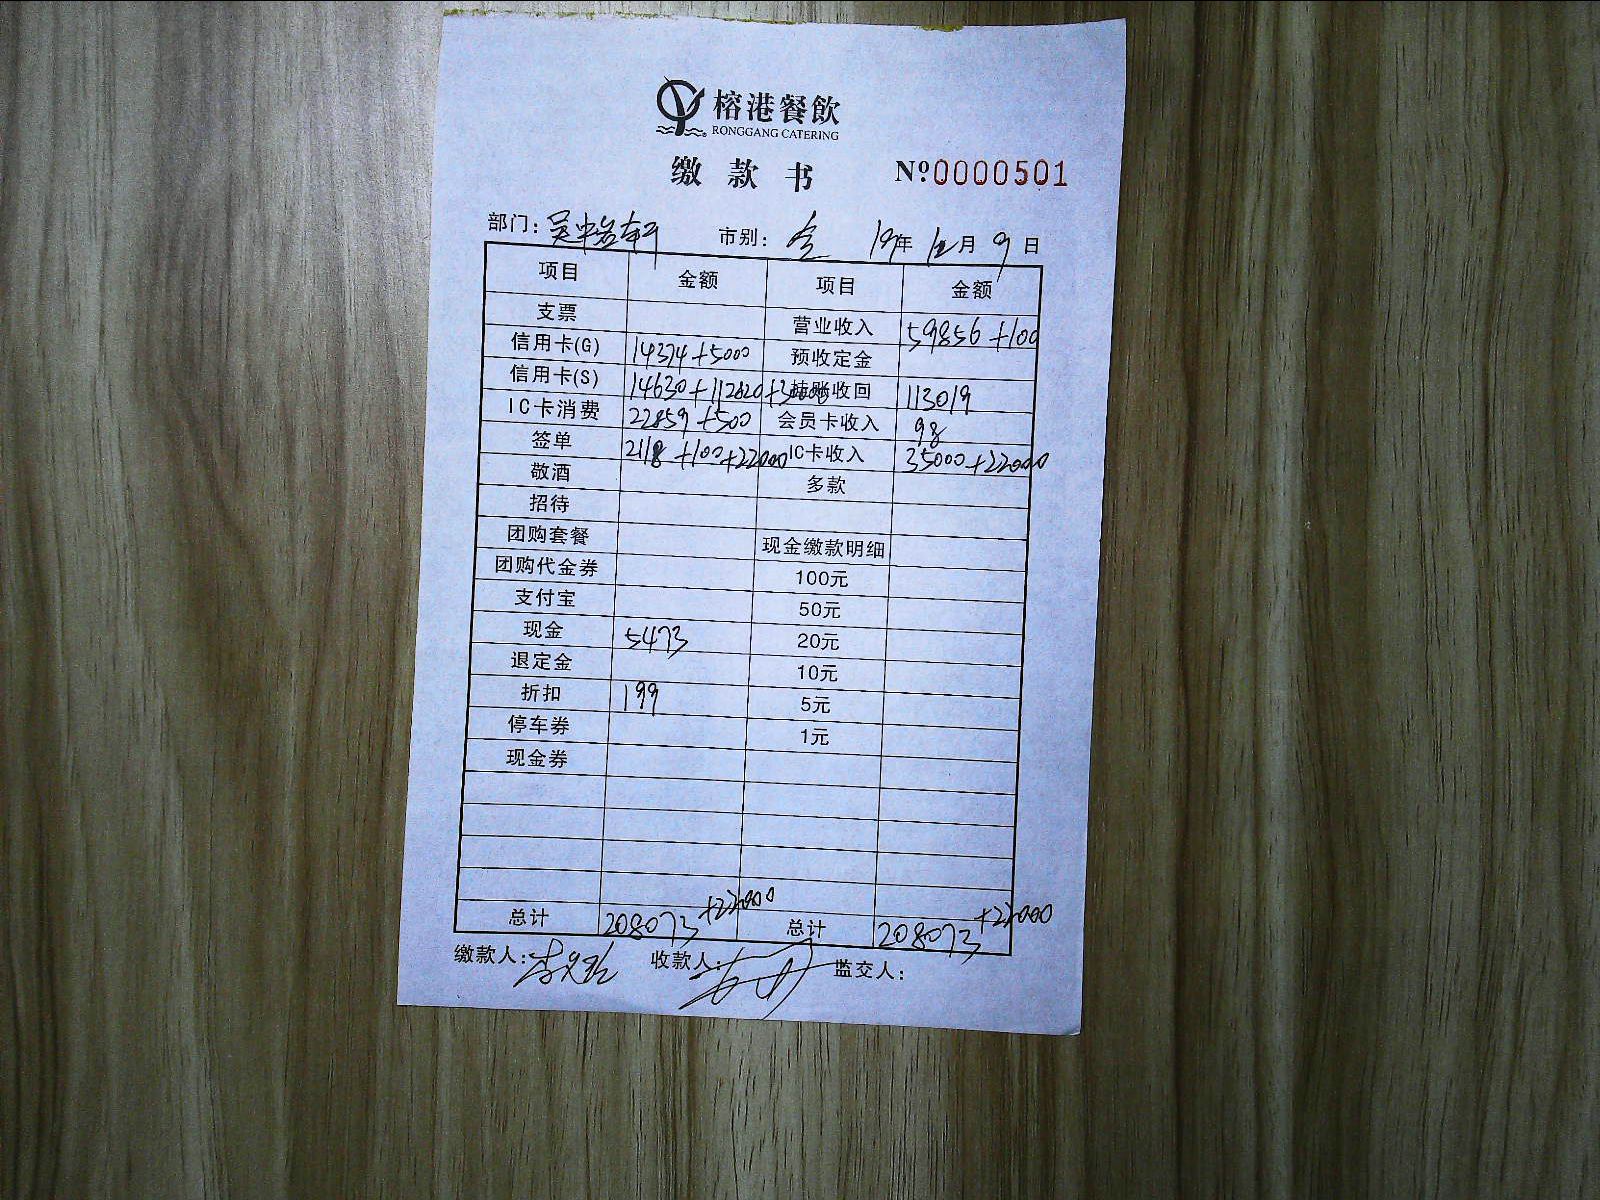 榕港餐飲
RONGGANG CATERING
缴款书 Nº0000501
部门: 吴中 市别: 全 19年12月9日
项目 金额 项目 金额
支票 营业收入 59856+100
信用卡(G) 14374+5000 预收定金
信用卡(S) 14630+112820+30000 挂账收回 113019
IC卡消费 22859+500 会员卡收入 98
签单 2118+100+22000 IC卡收入 35000+22000
敬酒 多款
招待
团购套餐 现金缴款明细
团购代金券 100元
支付宝 50元
现金 5473 20元
退定金 10元
折扣 199 5元
停车券 1元
现金券
总计 208073+22000 总计 208073+22000
缴款人: 收款人: 监交人: